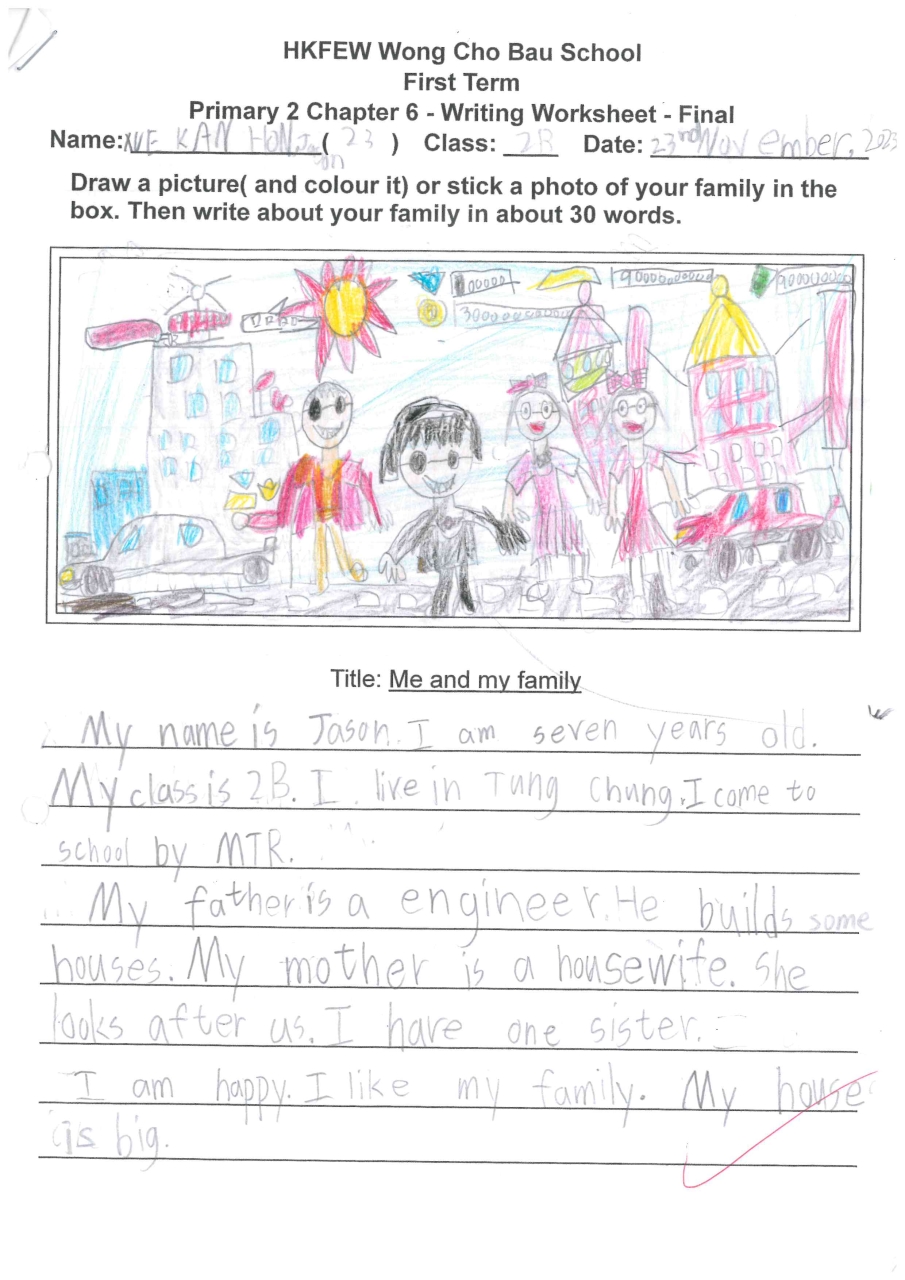 HKFEW Wong Cho Bau School
First Term
Primary 2 Chapter 6 - Writing Worksheet - Final
Name: XUE KAN HON, Jason ( 23 ) Class: 2B Date: 23rd November, 2023
Draw a picture( and colour it) or stick a photo of your family in the
box. Then write about your family in about 30 words.
Title: Me and my family
My name is Jason. I am seven years old.
My class is 2B. I live in Tung Chung. I come to
school by MTR.
My father is a engineer. He builds some
houses. My mother is a housewife. She
looks after us. I have one sister.
I am happy. I like my family. My house
is big.